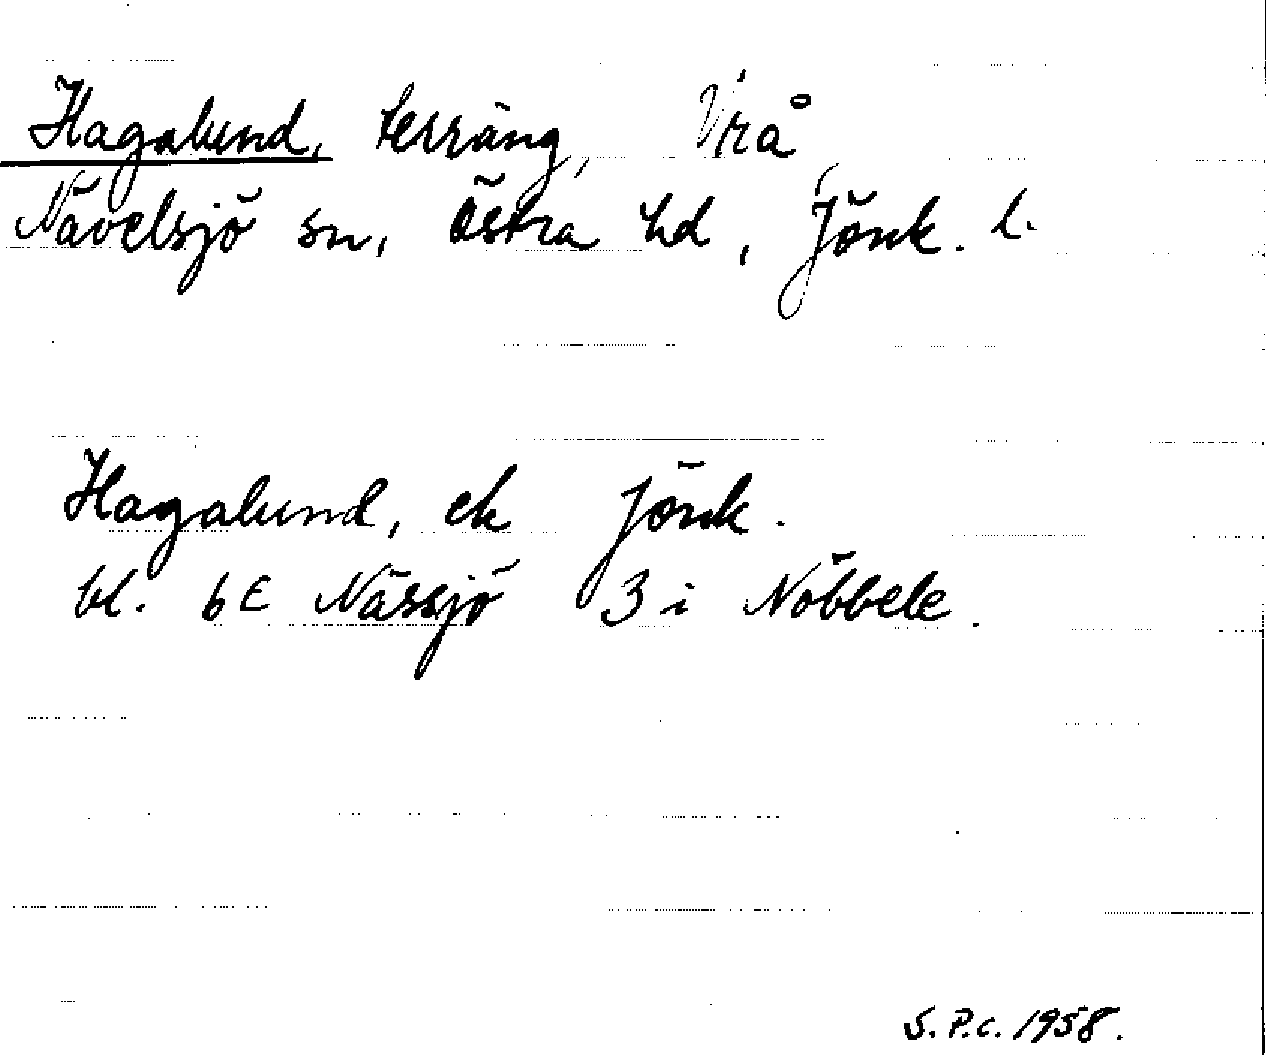 Hagalund, terräng, Vrå,
Nävelsjö sn, Östra hd, Jönk. l.
Hagalund, ek Jönk.
bl. 6E Nässjö 3 i Nöbbele.
S.P.C. 1958.